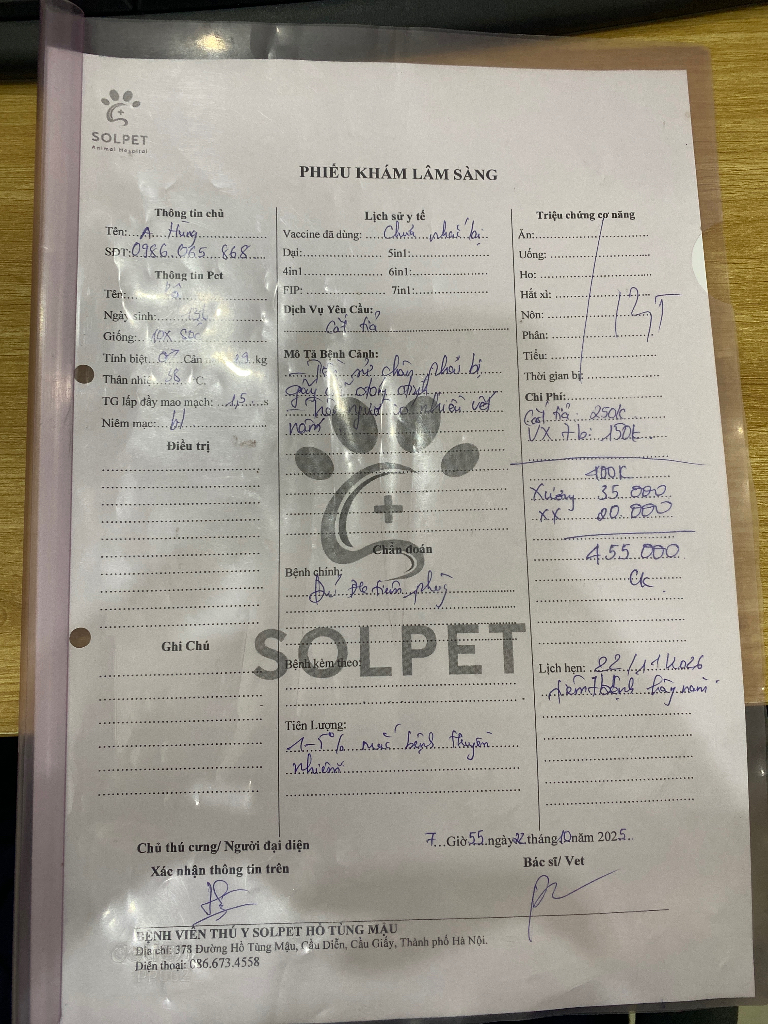 SOLPET
Animal Hospital
PHIẾU KHÁM LÂM SÀNG
Thông tin chủ
Tên: A Hùng
SĐT: 0986.065.868
Thông tin Pet
Tên:
Ngày sinh:
Giống: 10X
Tính biệt: Cân kg
Thân nhiệt: 38 °C
TG lấp đầy mao mạch: 1,5 s
Niêm mạc: bt
Điều trị
Ghi Chú
Lịch sử y tế
Vaccine đã dùng:
Dại: 5in1:
4in1 6in1:
FIP: 7in1:
Dịch Vụ Yêu Cầu:
Cắt tỉa
Mô Tả Bệnh Cảnh:
chân phải bị
nhiều vết
nấm
Chẩn đoán
Bệnh chính:
Đủ đk tiêm phòng
SOLPET
Bệnh kèm theo:
Tiên Lượng:
1-5% mắc bệnh truyền
nhiễm
Triệu chứng cơ năng
Ăn:
Uống:
Ho:
Hắt xì:
Nôn: BT
Phân:
Tiểu:
Thời gian bị:
Chi Phí:
Cắt tỉa 250k
VX 7 b: 150k
400k
Xương 35.000
XX 20.000
455.000
CK
Lịch hẹn: 22/11/2026
tiêm 7 bệnh hàng năm
Chủ thú cưng/ Người đại diện
Xác nhận thông tin trên
7 Giờ 55 ngày 22 tháng 10 năm 2025
Bác sĩ/ Vet
BỆNH VIỆN THÚ Y SOLPET HỒ TÙNG MẬU
Địa chỉ: 378 Đường Hồ Tùng Mậu, Cầu Diễn, Cầu Giấy, Thành phố Hà Nội.
Điện thoại: 086.673.4558